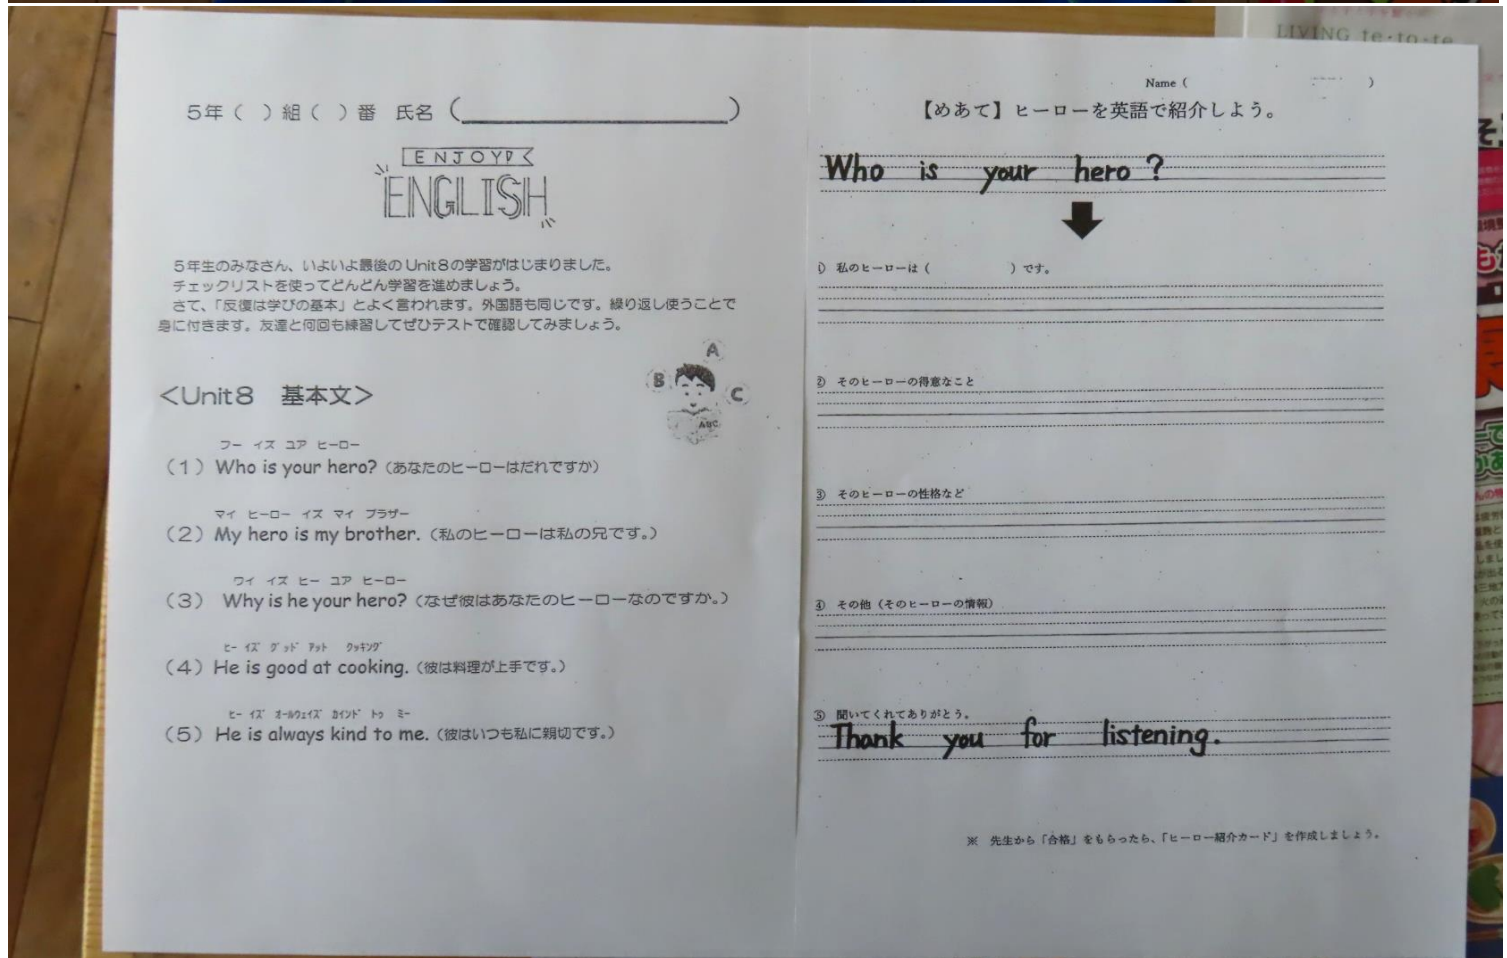 5年（　）組（　）番　氏名（　）
ENJOY
ENGLISH
5年生のみなさん、いよいよ最後のUnit8の学習がはじまりました。
チェックリストを使ってどんどん学習を進めましょう。
さて、「反復は学びの基本」とよく言われます。外国語も同じです。繰り返し使うことで
身に付きます。友達と何回も練習してぜひテストで確認してみましょう。
A
B
C
ABC
＜Unit8　基本文＞
フー　イズ　ユア　ヒーロー
（1）Who is your hero?（あなたのヒーローはだれですか）
マイ　ヒーロー　イズ　マイ　ブラザー
（2）My hero is my brother.（私のヒーローは私の兄です。）
ワイ　イズ　ヒー　ユア　ヒーロー
（3）Why is he your hero?（なぜ彼はあなたのヒーローなのですか。）
ヒー　イズ　グッド　アット　クッキング
（4）He is good at cooking.（彼は料理が上手です。）
ヒー　イズ　オールウェイズ　カインド　トゥ　ミー
（5）He is always kind to me.（彼はいつも私に親切です。）
Name（　）
【めあて】ヒーローを英語で紹介しよう。
Who is your hero?
① 私のヒーローは（　）です。
② そのヒーローの得意なこと
③ そのヒーローの性格など
④ その他（そのヒーローの情報）
⑤ 聞いてくれてありがとう。
Thank you for listening.
※　先生から「合格」をもらったら、「ヒーロー紹介カード」を作成しましょう。
LIVING te・to・te